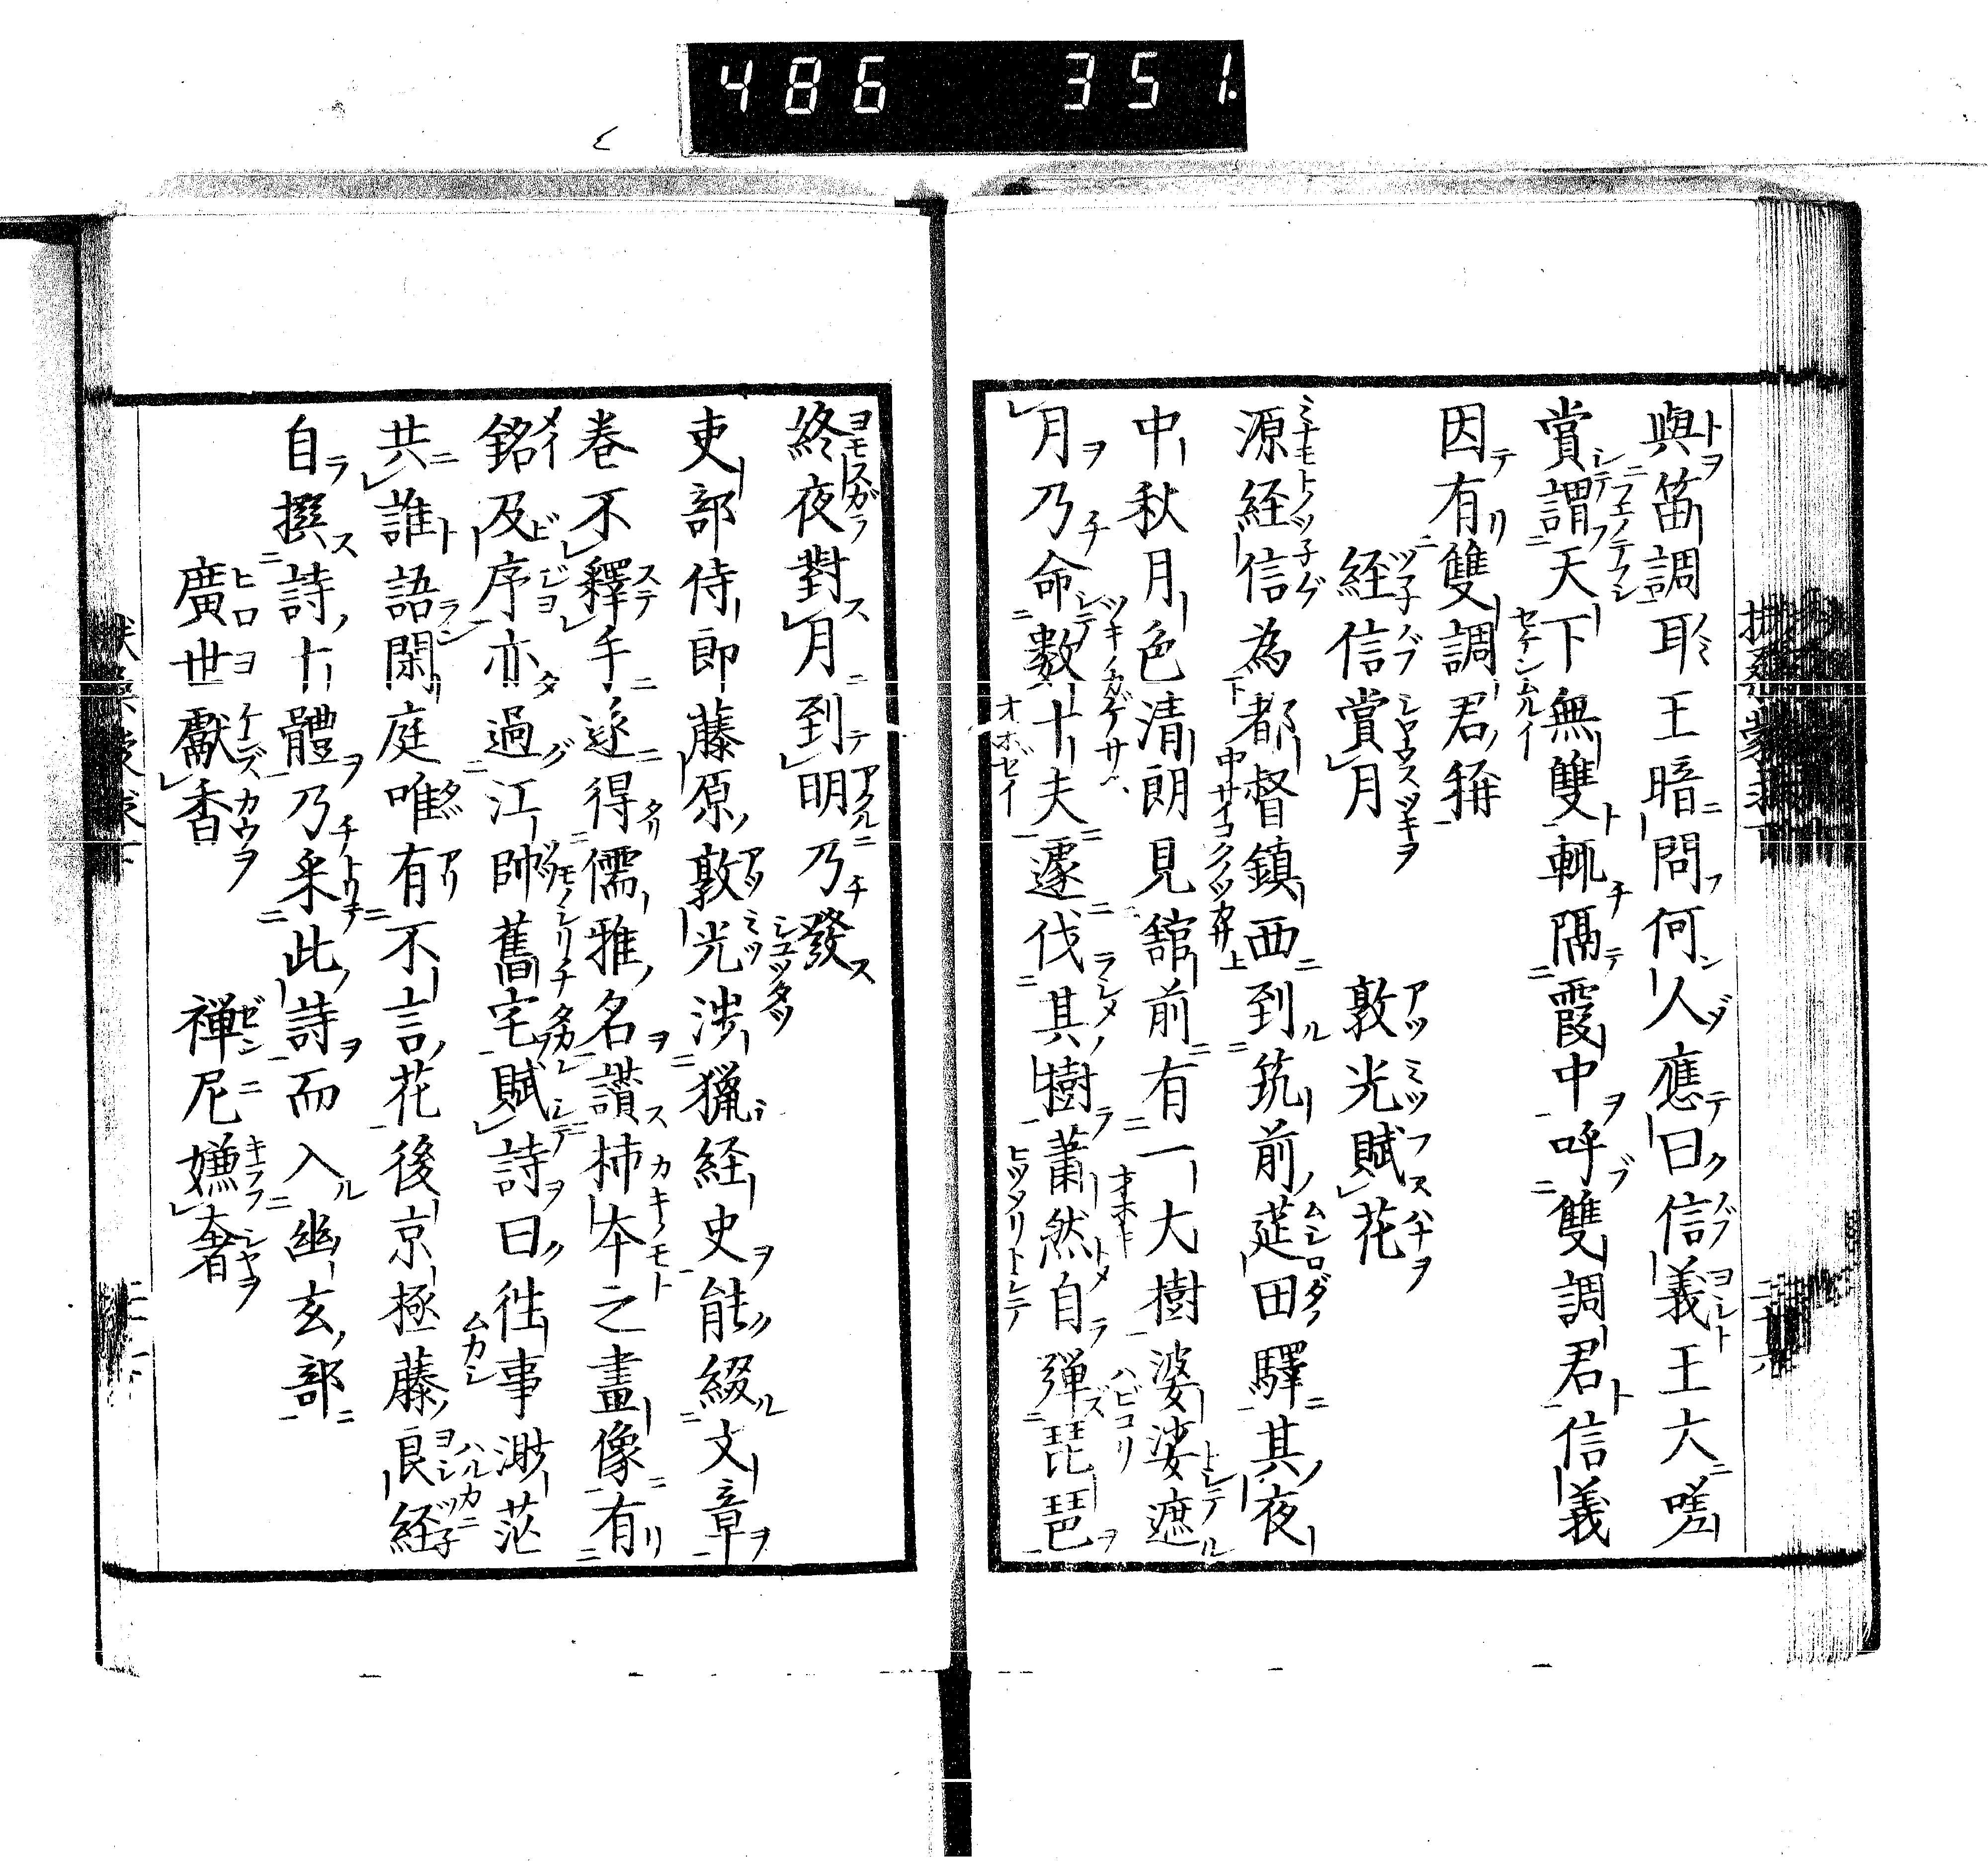 486 351.
與笛調耳王暗問何人應曰信義王大嗟
賞謂天下無雙輙隔霞中呼雙調君信義
因有雙調君稱
経信賞月 敦光賦花
源経信為都督鎮西到筑前莚田驛其夜
中秋月色清朗見舘前有一大樹婆娑遮
月乃命數十夫遽伐其樹蕭然自弾琵琶
終夜對月到明乃發
吏部侍郎藤原敦光渉獵経史能綴文章
巻不釋手遂得儒雅名讃柿本之畫像有
銘及序亦過江帥舊宅賦詩曰徃事渺茫
共誰語閑庭唯有不言花後京極藤良経
自撰詩十體乃采此詩而入幽玄部
廣世獻香 禅尼嫌奢